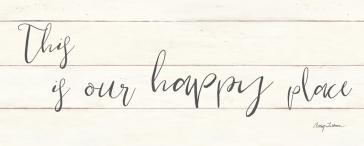 This
is our happy place